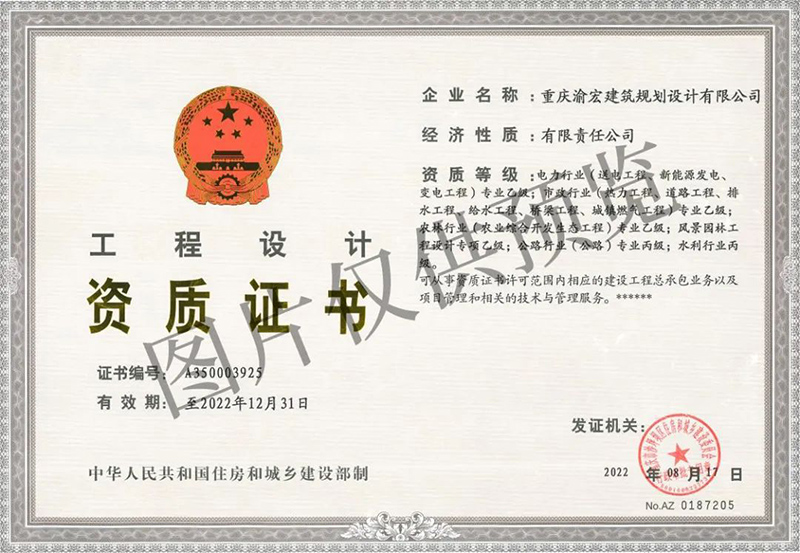 工程设计
资质证书
证书编号：A350003925
有效期：至2022年12月31日
中华人民共和国住房和城乡建设部制
企业名称：重庆渝宏建筑规划设计有限公司
经济性质：有限责任公司
资质等级：电力行业（送电工程、新能源发电、
变电工程）专业乙级；市政行业（热力工程、道路工程、排
水工程、给水工程、桥梁工程、城镇燃气工程）专业乙级；
农林行业（农业综合开发生态工程）专业乙级；风景园林工
程设计专项乙级；公路行业（公路）专业丙级；水利行业丙
级。
可从事资质证书许可范围内相应的建设工程总承包业务以及
项目管理和相关的技术与管理服务。******
发证机关：
2022 年 08 月 17 日
No.AZ 0187205
图片仅供预览